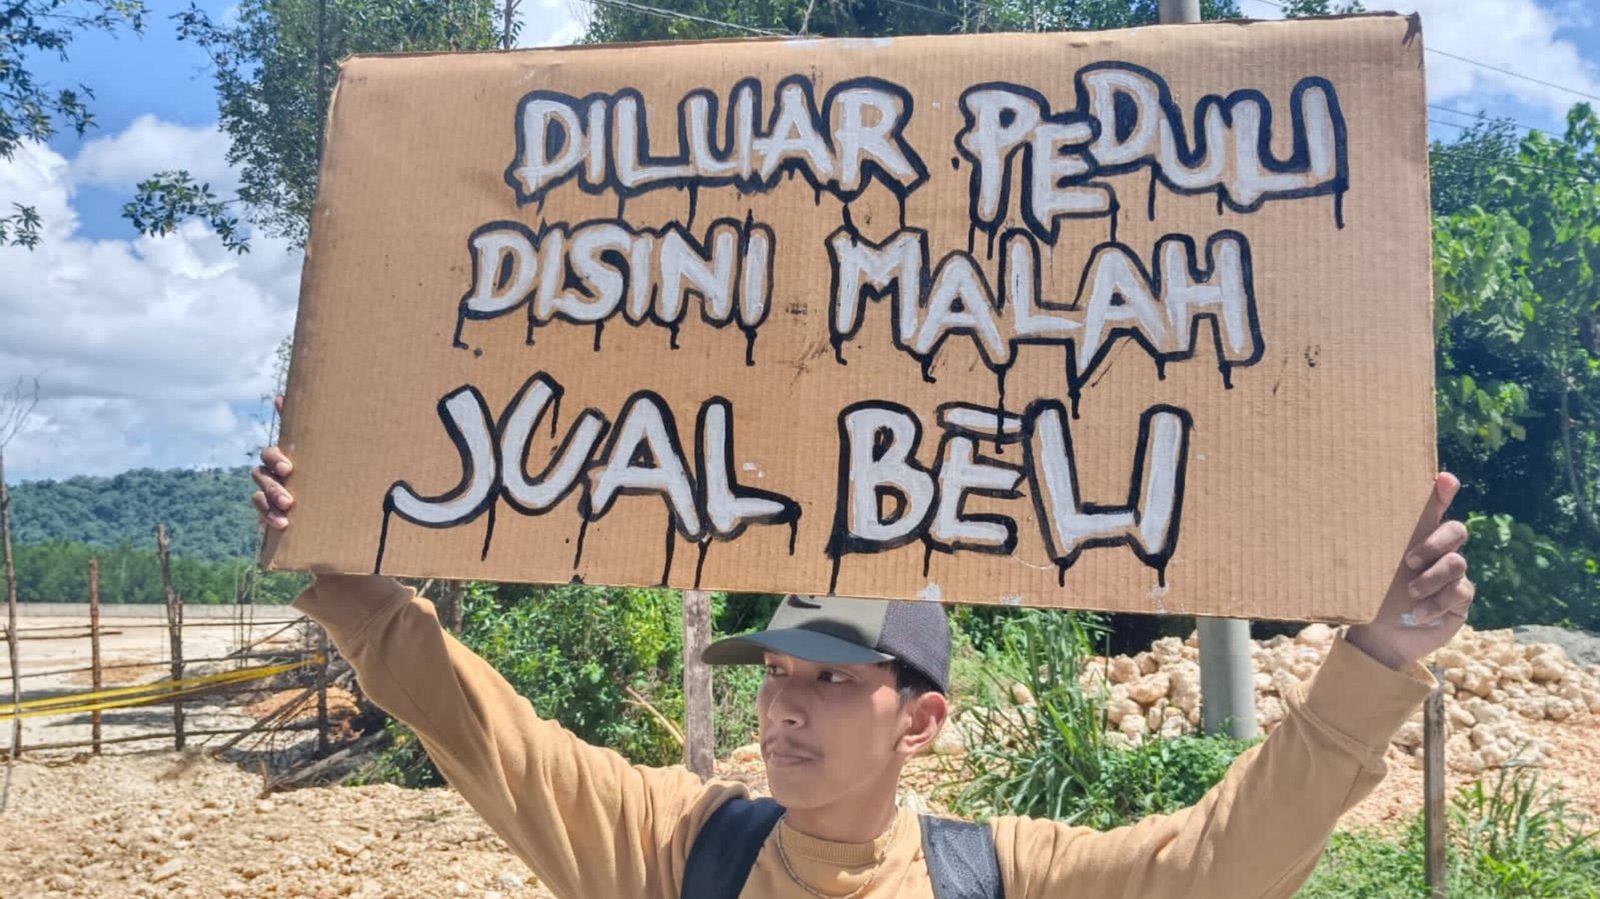 DILUAR PEDULI
DISINI MALAH
JUAL BELI